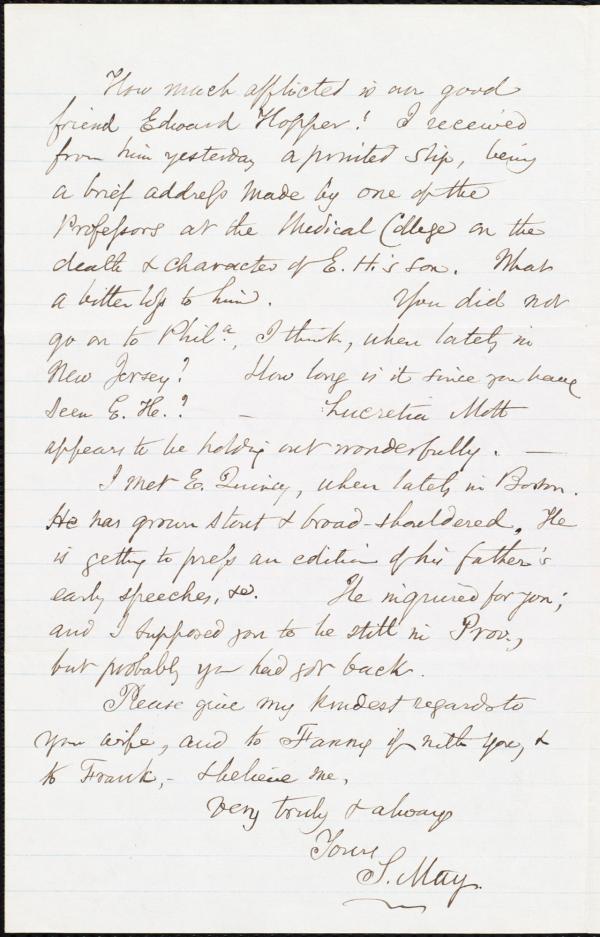 How much afflicted is our good
friend Edward Hopper! I received
from him yesterday a printed slip, being
a brief address made by one of the
Professors at the Medical College on the
death & character of E. H.'s son. What
a bitter loss to him. You did not
go on to Phila, I think, when lately in
New Jersey? How long is it since you have
seen E. H.? — Lucretia Mott
appears to be holding out wonderfully. —
I met E. Quincy, when lately in Boston.
He has grown stout & broad-shouldered. He
is getting to press an edition of his father's
early speeches, &c. He inquired for you;
and I supposed you to be still in Prov.,
but probably you had got back.
Please give my kindest regards to
your wife, and to Fanny if with you, &
to Frank, - & believe me,
very truly & always
Yours
S. May.